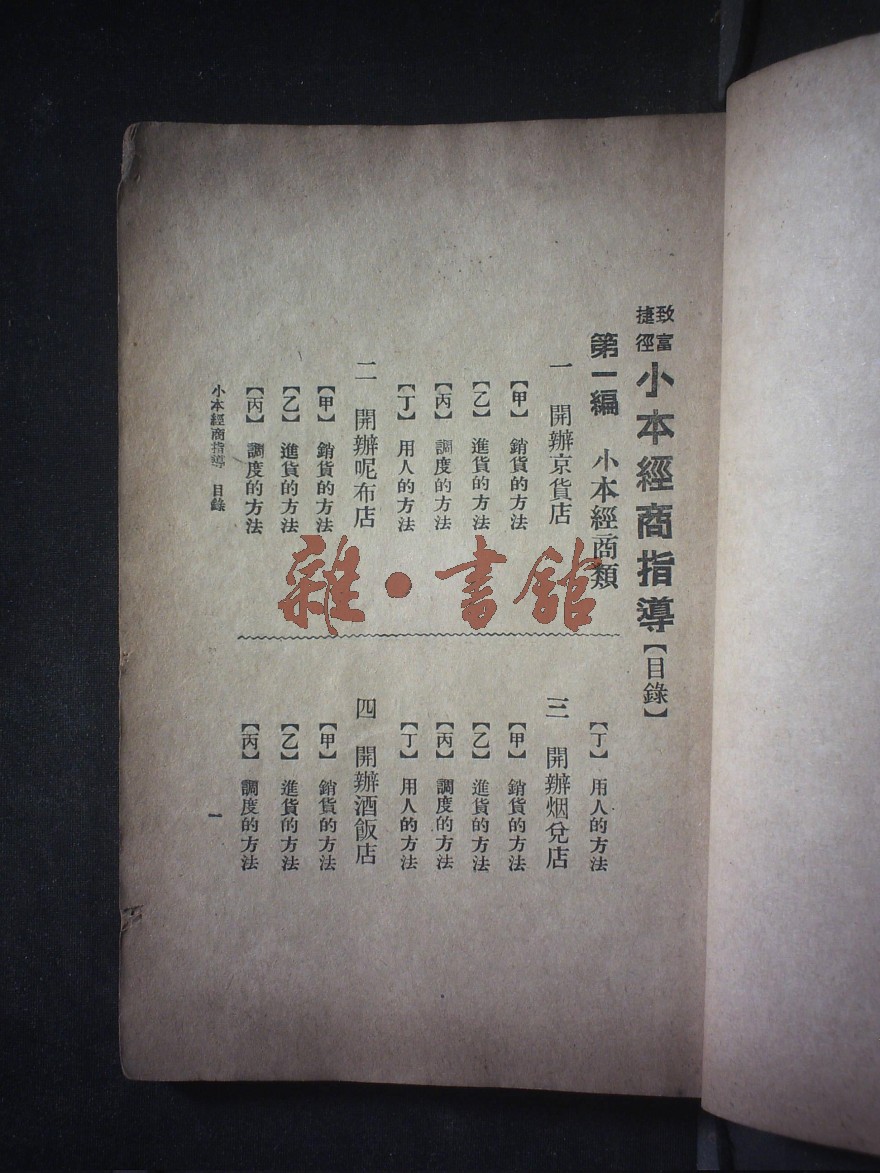 致富捷徑 小本經商指導【目錄】
第一編 小本經商類
一 開辦京貨店
【甲】 銷貨的方法
【乙】 進貨的方法
【丙】 調度的方法
【丁】 用人的方法
二 開辦呢布店
【甲】 銷貨的方法
【乙】 進貨的方法
【丙】 調度的方法
【丁】 用人的方法
三 開辦烟兌店
【甲】 銷貨的方法
【乙】 進貨的方法
【丙】 調度的方法
【丁】 用人的方法
四 開辦酒飯店
【甲】 銷貨的方法
【乙】 進貨的方法
【丙】 調度的方法
小本經商指導 目錄
一
雜·書館